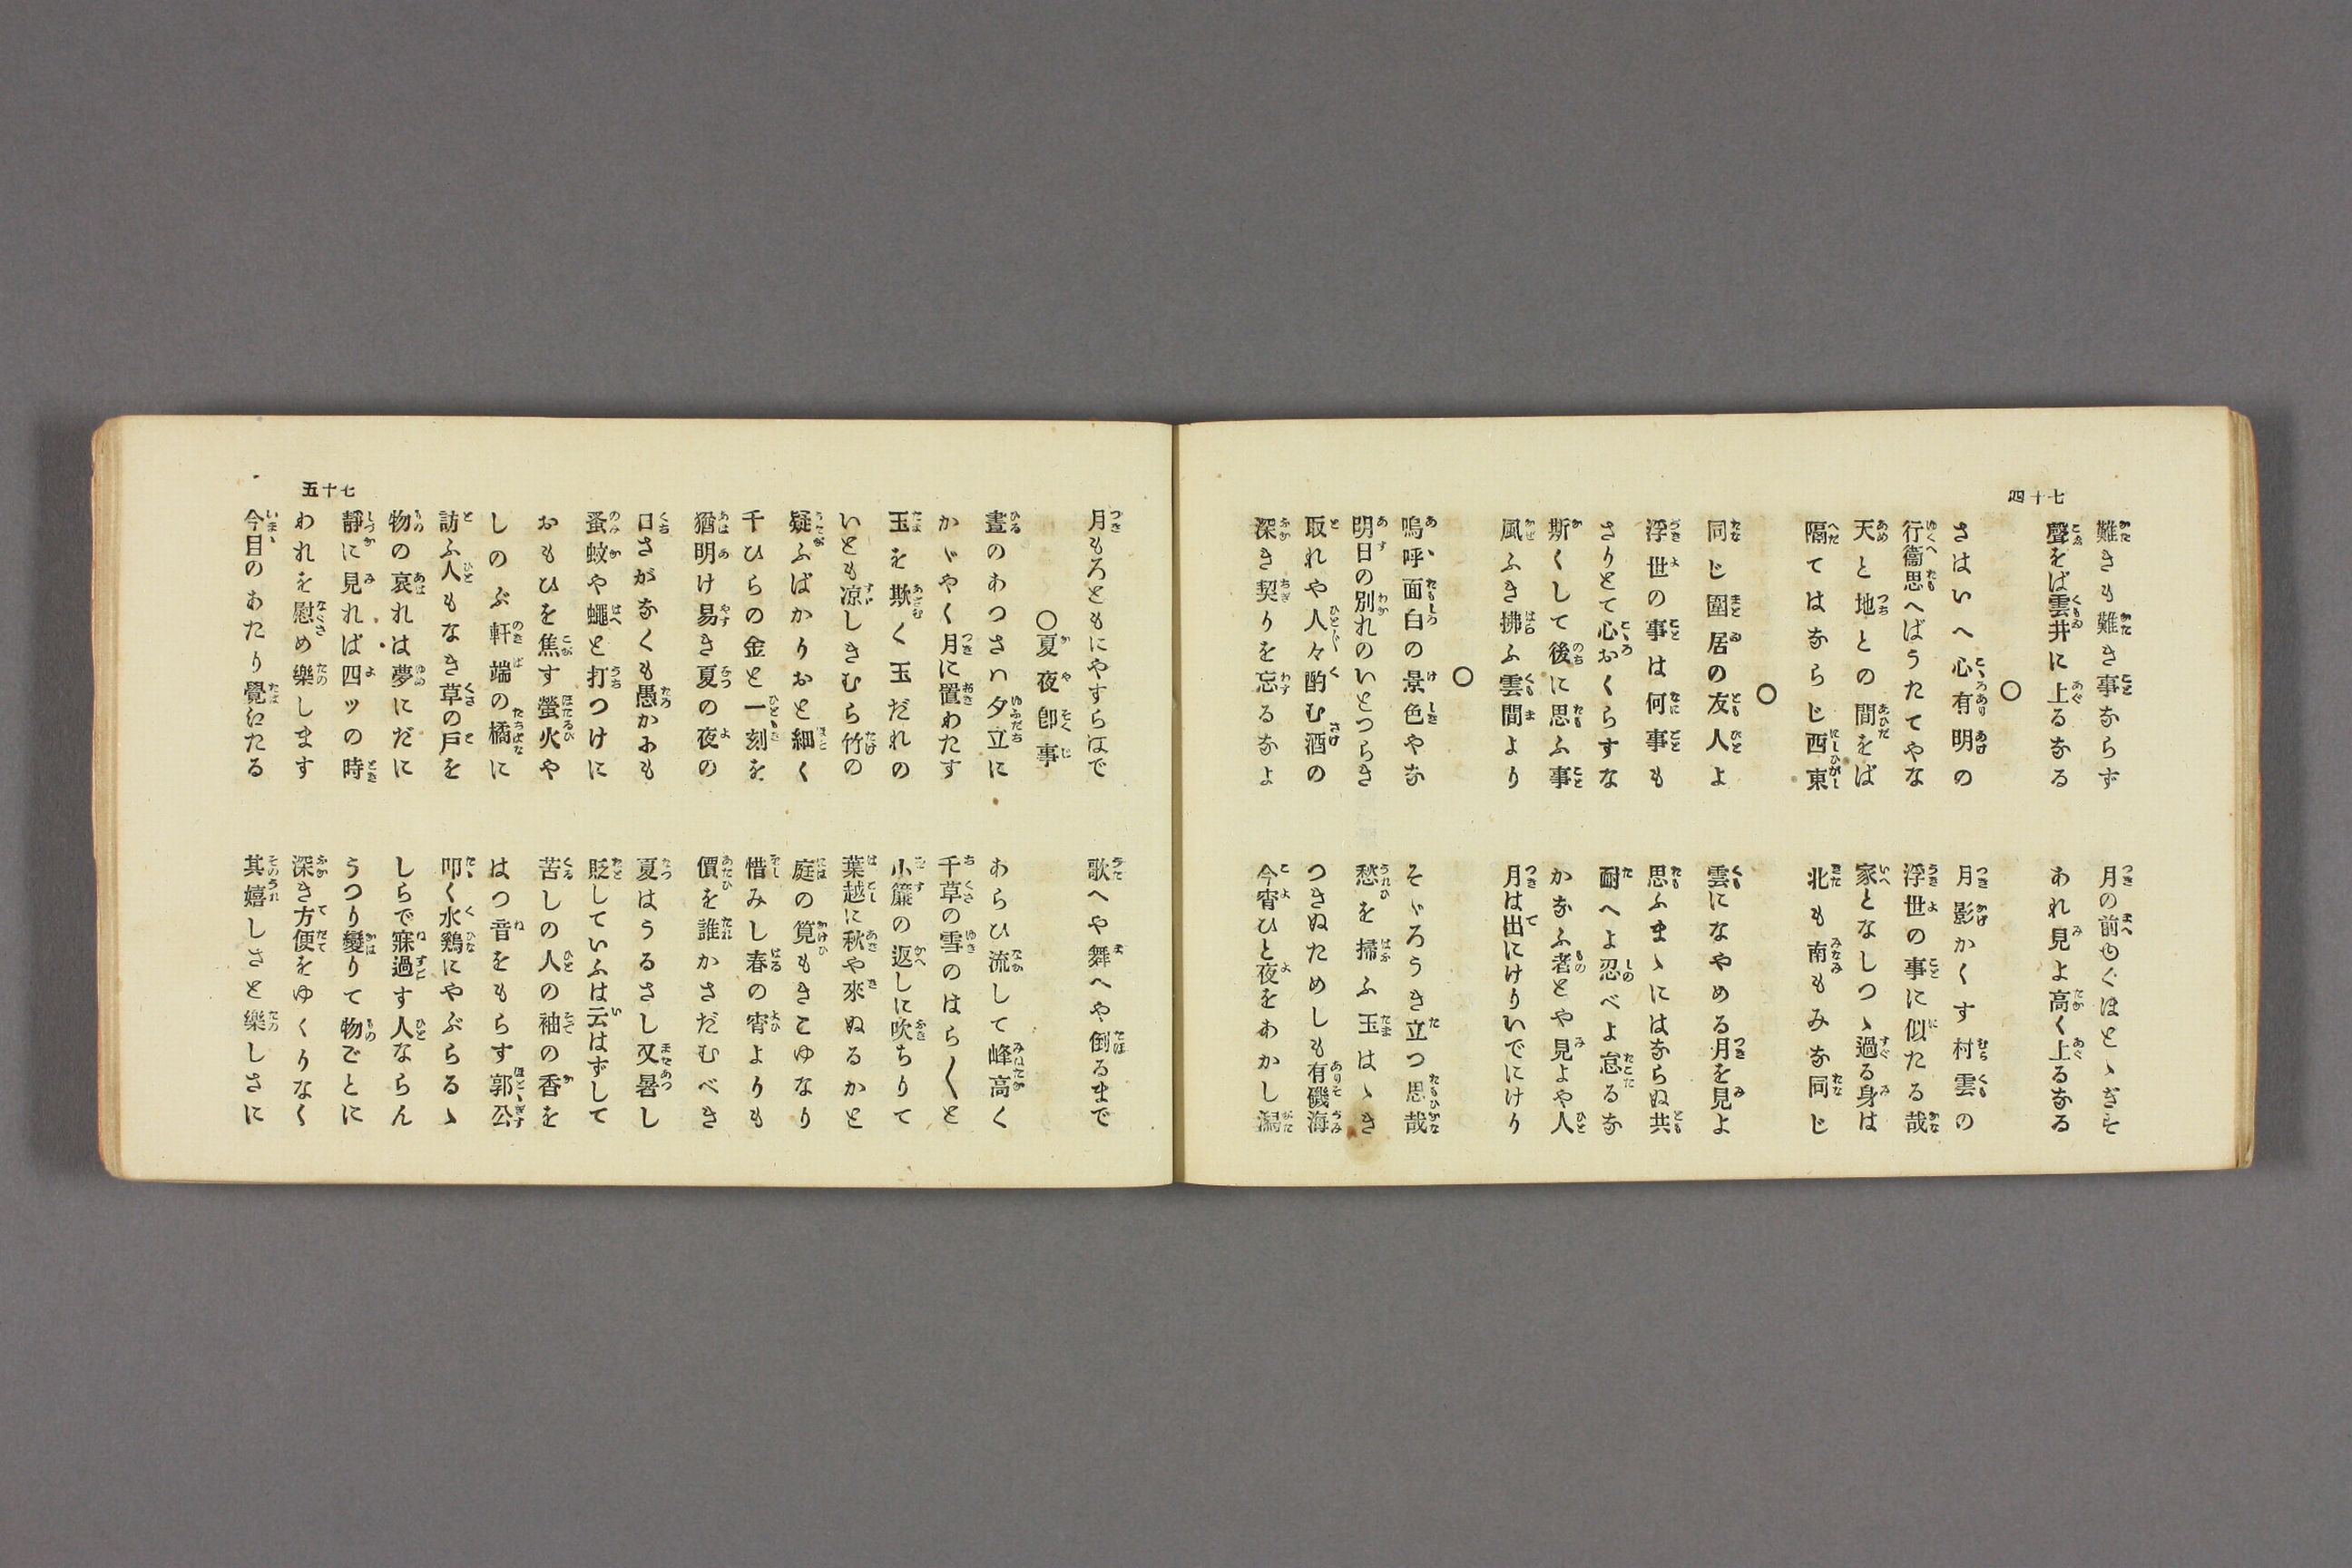 七十四
難きも難き事ならず　月の前めぐほとゝぎす
聲をば雲井に上るなる　あれ見よ高く上るなる
○
さはいへ心有明の　月影かくす村雲の
行衞思へばうたてやな　浮世の事に似たる哉
天と地との間をば　家となしつゝ過る身は
隔てはならじ西東　北も南もみな同じ
○
同じ圍居の友人よ　雲になやめる月を見よ
浮世の事は何事も　思ふまゝにはならぬ共
さりとて心おくらすな　耐へよ忍べよ怠るな
斯くして後に思ふ事　かなふ者とや見よや人
風ふき拂ふ雲間より　月は出にけりいでにけり
○
嗚呼面白の景色やな　そゞろうき立つ思哉
明日の別れのいとつらき　愁を掃ふ玉はゝき
取れや人々酌む酒の　つきぬためしも有磯海
深き契りを忘るなよ　今宵ひと夜をあかし潟
月もろともにやすらはで　歌へや舞へや倒るまで
○夏夜即事
晝のあつさハ夕立に　あらひ流して峰高く
かゞやく月に置わたす　千草の雪のはら〱と
玉を欺く玉だれの　小簾の返しに吹ちりて
いとも凉しきむら竹の　葉越に秋や來ぬるかと
疑ふばかりおと細く　庭の筧もきこゆなり
千ひらの金と一刻を　惜みし春の宵よりも
猶明け易き夏の夜の　價を誰かさだむべき
口さがなくも愚かおも　夏はうるさし又暑し
蚤蚊や蠅と打つけに　貶していふは云はずして
おもひを焦す螢火や　苦しの人の袖の香を
しのぶ軒端の橘に　はつ音をもらす郭公
訪ふ人もなき草の戸を　叩く水鷄にやぶらるゝ
物の哀れは夢にだに　しらで寐過す人ならん
靜に見れば四ッの時　うつり變りて物ごとに
われを慰め樂します　深き方便をゆくりなく
今目のあたり覺にたる　其嬉しさと樂しさに
七十五